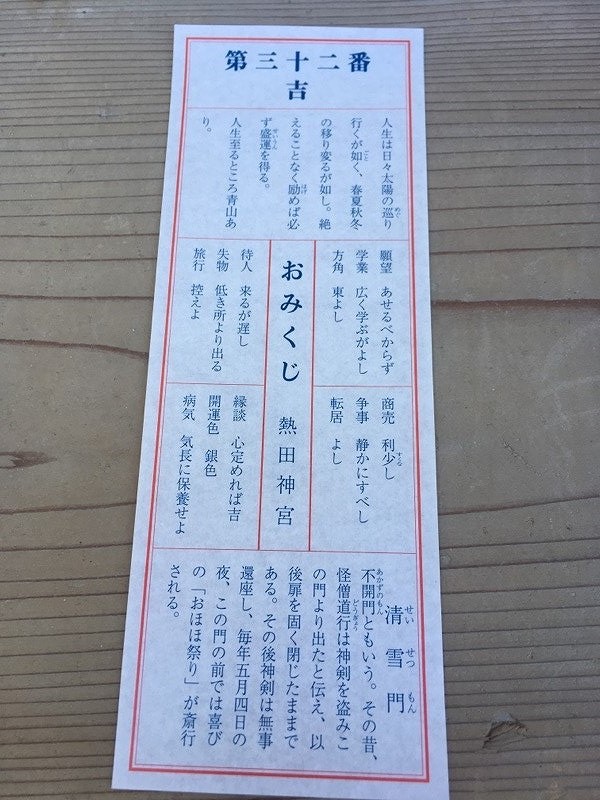 第三十二番
吉
人生は日々太陽の巡り
行くが如く、春夏秋冬
の移り変るが如し。絶
えることなく励めば必
ず盛運を得る。
人生至るところ青山あ
り。
願望 あせるべからず
学業 広く学ぶがよし
方角 東よし
商売 利少し
争事 静かにすべし
転居 よし
おみくじ 熱田神宮
待人 来るが遅し
失物 低き所より出る
旅行 控えよ
縁談 心定めれば吉
開運色 銀色
病気 気長に保養せよ
清雪門
不開門ともいう。その昔、
怪僧道行は神剣を盗みこ
の門より出たと伝え、以
後扉を固く閉じたままで
ある。その後神剣は無事
還座し、毎年五月四日の
夜、この門の前では喜び
の「おほほ祭り」が斎行
される。